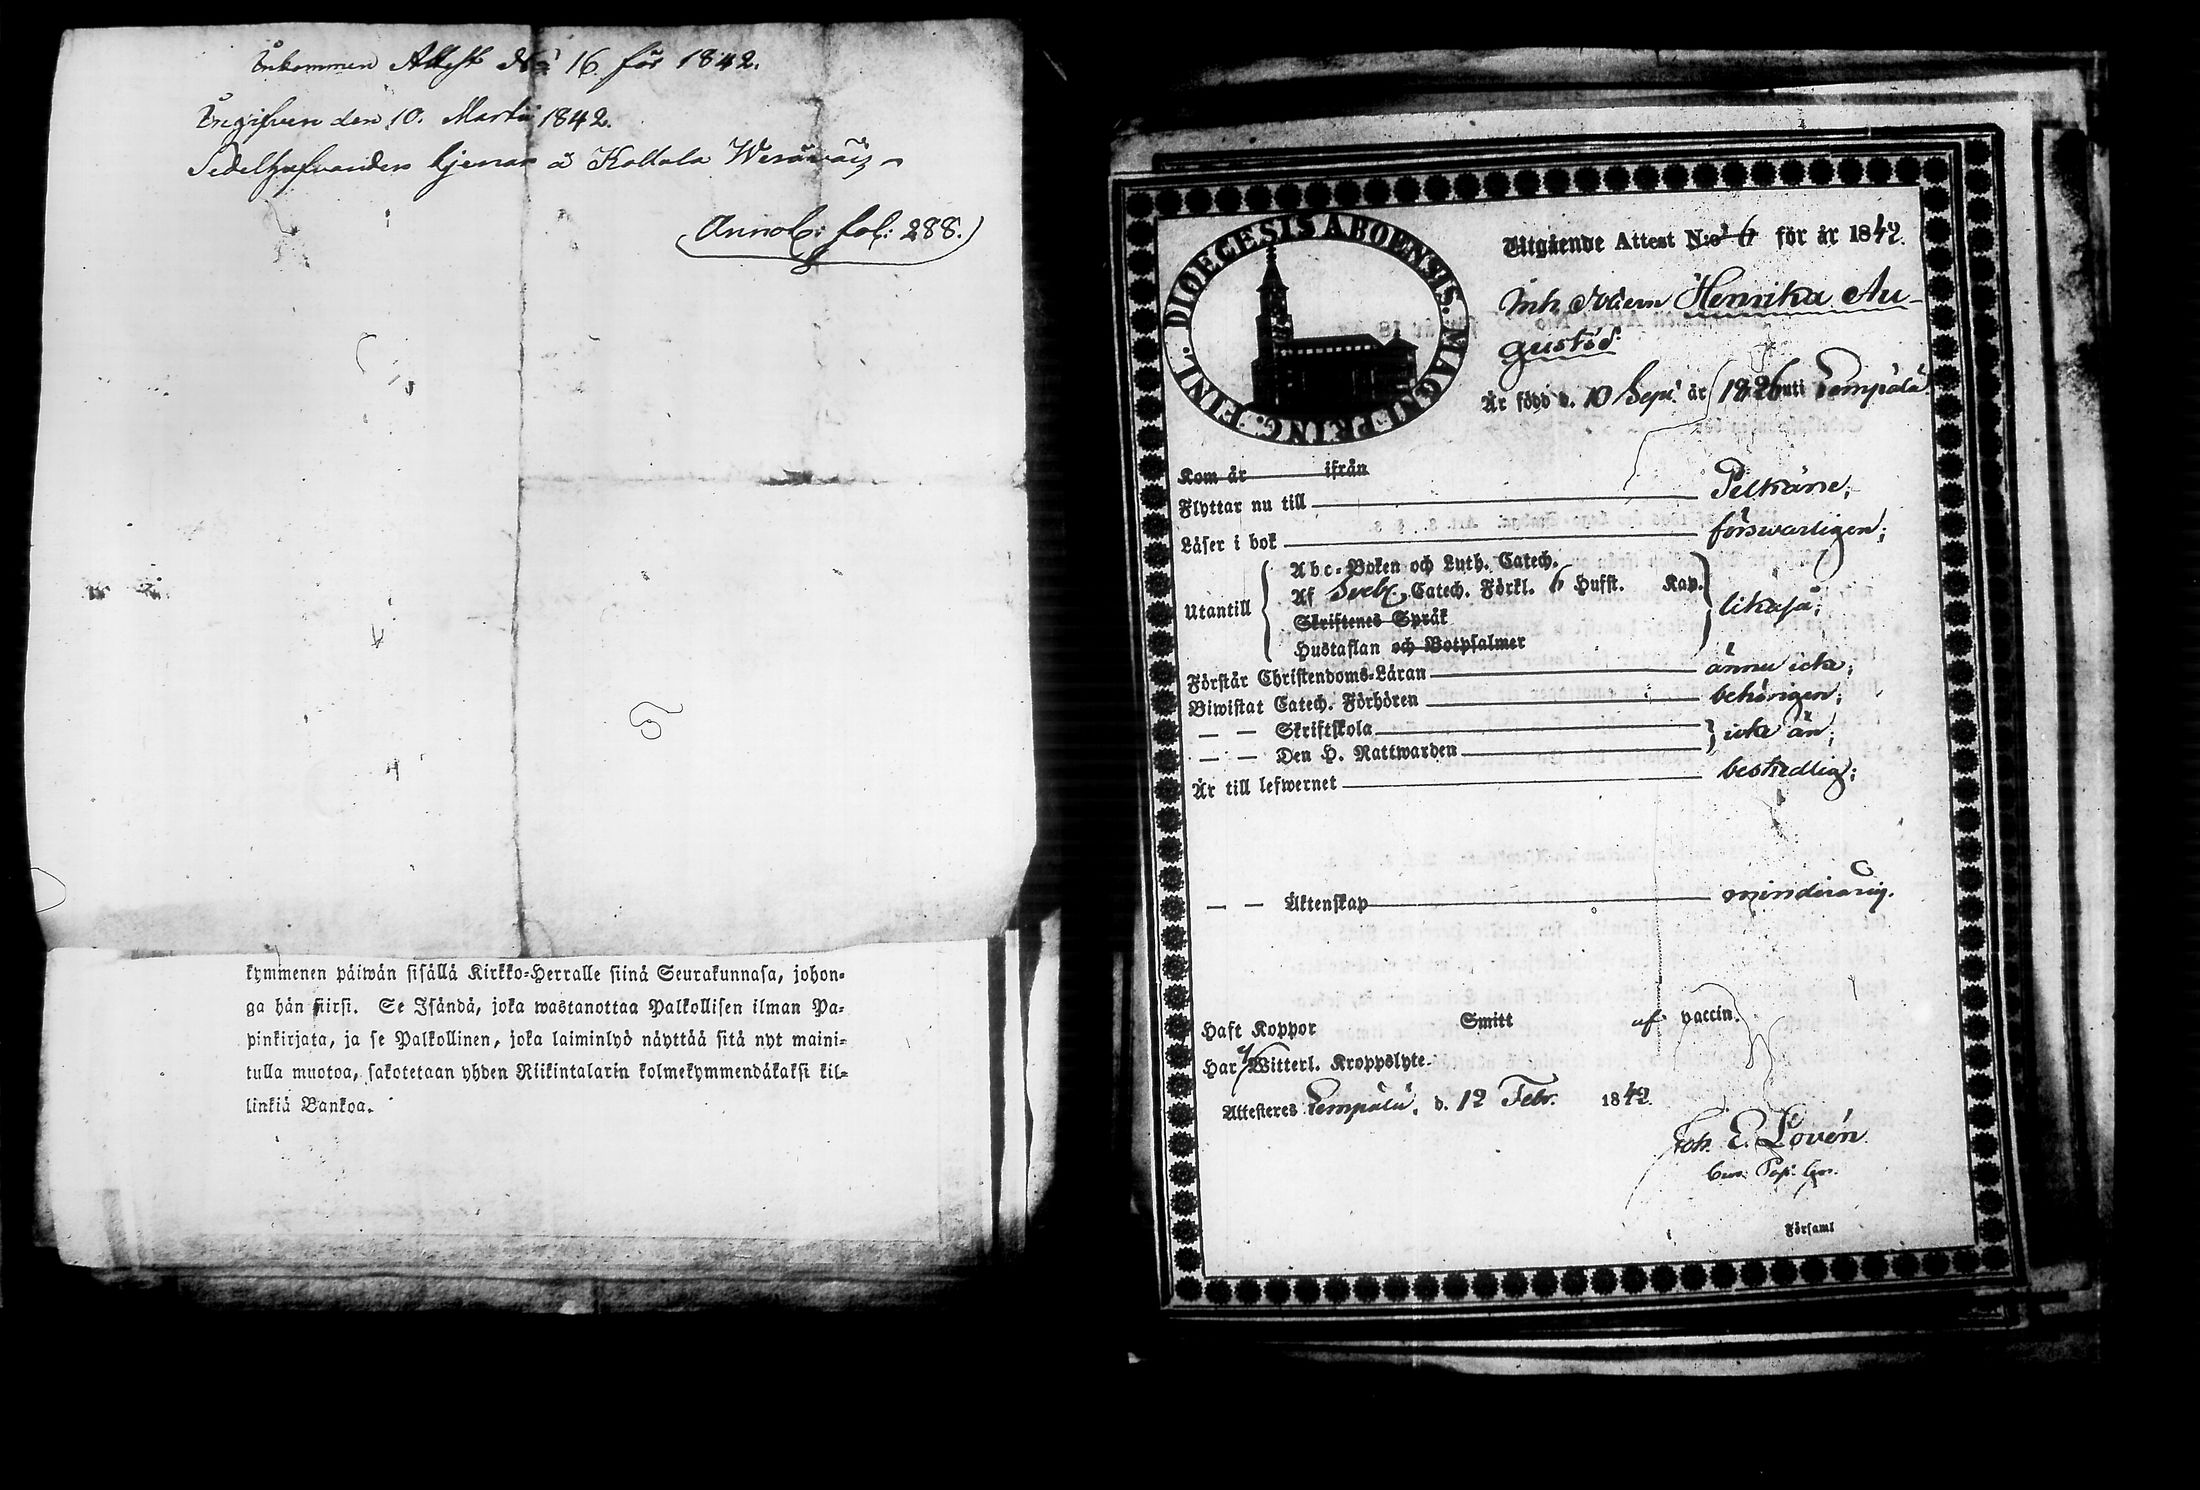 Inkommen Attest No 16 för 1842.
Ingifven den 10. Martii 1842.
Sedelhafvanden tjenar å Kallola
Annot: fol: 288.
kymmenen päiwän sisällä Kirkko-Herralle siinä Seurakunnasa, johon-
ga hän siirsi. Se Isändä, joka wastanottaa Palkollisen ilman Pa-
pinkirjata, ja se Palkollinen, joka laiminlyö näyttää sitä nyt maini-
tulla muotoa, sakotetaan yhden Riikintalarin kolmekymmendäkaksi kil-
linkiä Bankoa.
DIOECESIS ABOENSIS. MAGNI PRINC. FINL.
Utgående Attest N:o 6 för år 1842.
Henrika Au-
gustsd:
Är född d. 10 Sept: år 1826 uti Lempälä
Kom år ifrån
Flyttar nu till Pelkäne;
Läser i bok förswarligen;
Utantill
Abc-Boken och Luth. Catech.
Af Sveb. Catech. Förkl. 6 Hufst. Kap.
Skriftenes Språk
Hustaflan och Botpsalmer
likaså;
Förstår Christendoms-Läran ännu icke;
Biwistat Catech. Förhören behörigen;
— — Skriftskola
— — Den H. Nattwarden
icke än;
Är till lefwernet beskedlig;
— — Äktenskap minderårig.
Haft Koppor Smitt af vaccin.
Har Witterl. Kroppslyte.
Attesteres Lempälä, d. 12 Febr. 1842.
Joh. E. Lovén
Församl